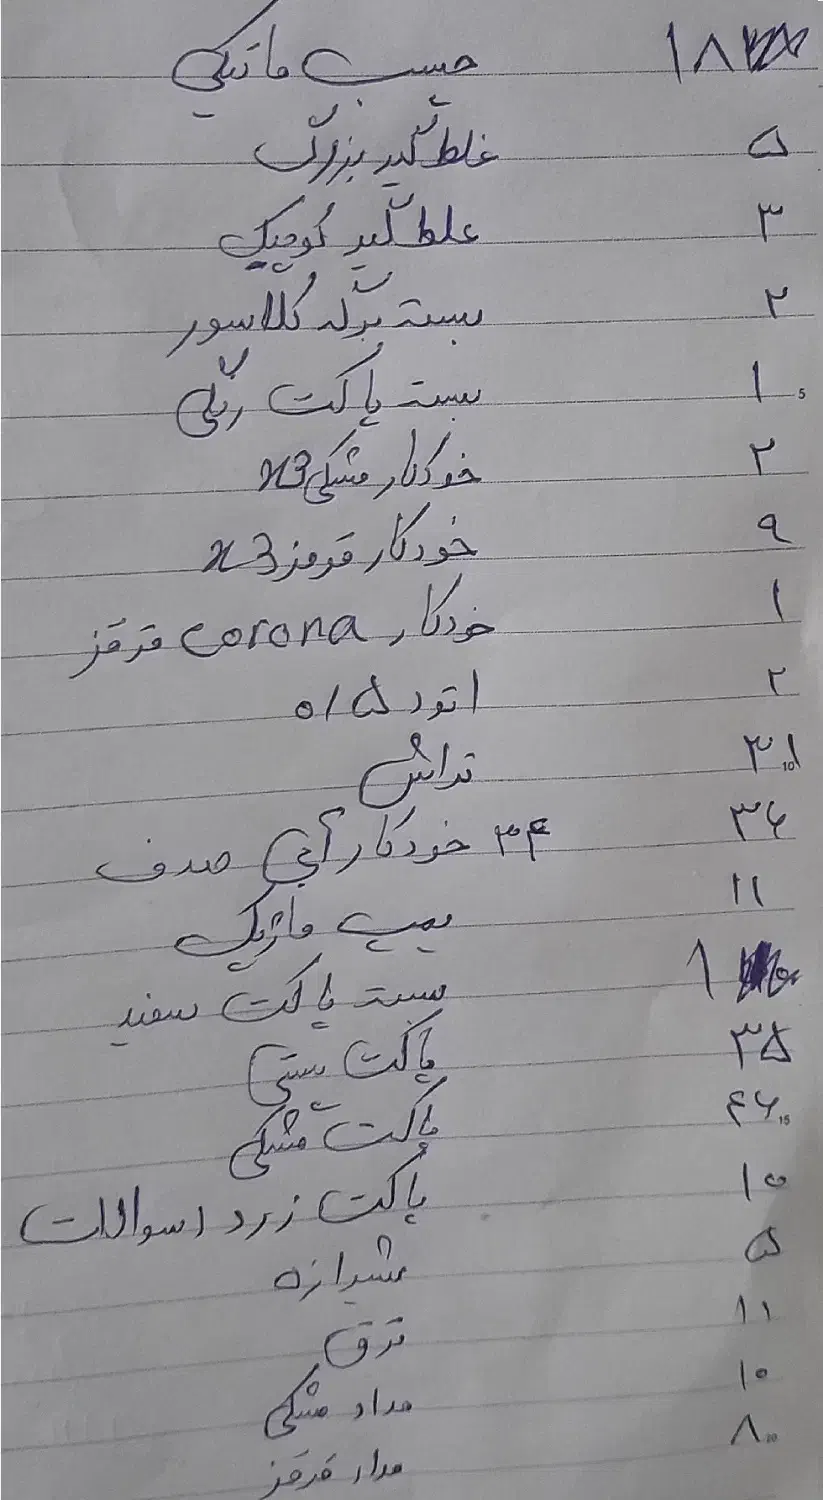 ۱۸ چسب ماتیکی
۵ غلط گیر بزرگ
۳ غلط گیر کوچیک
۲ بسته برگه کلاسور
۱ بسته پاکت رنگی
۲ خودکار مشکی x3
۹ خودکار قرمز x3
۱ خودکار corona قرمز
۲ اتود ۰/۵
۳۱ تراش
۳۶ ۳۴ خودکار آبی صدف
۱۱ پمپ ماژیک
۱ بسته پاکت سفید
۳۵ پاکت پستی
۴۶ پاکت مشکی
۱۰ پاکت زرد سوالات
۵ شیرازه
۱۱ ترق
۱۰ مداد مشکی
۸ مداد قرمز